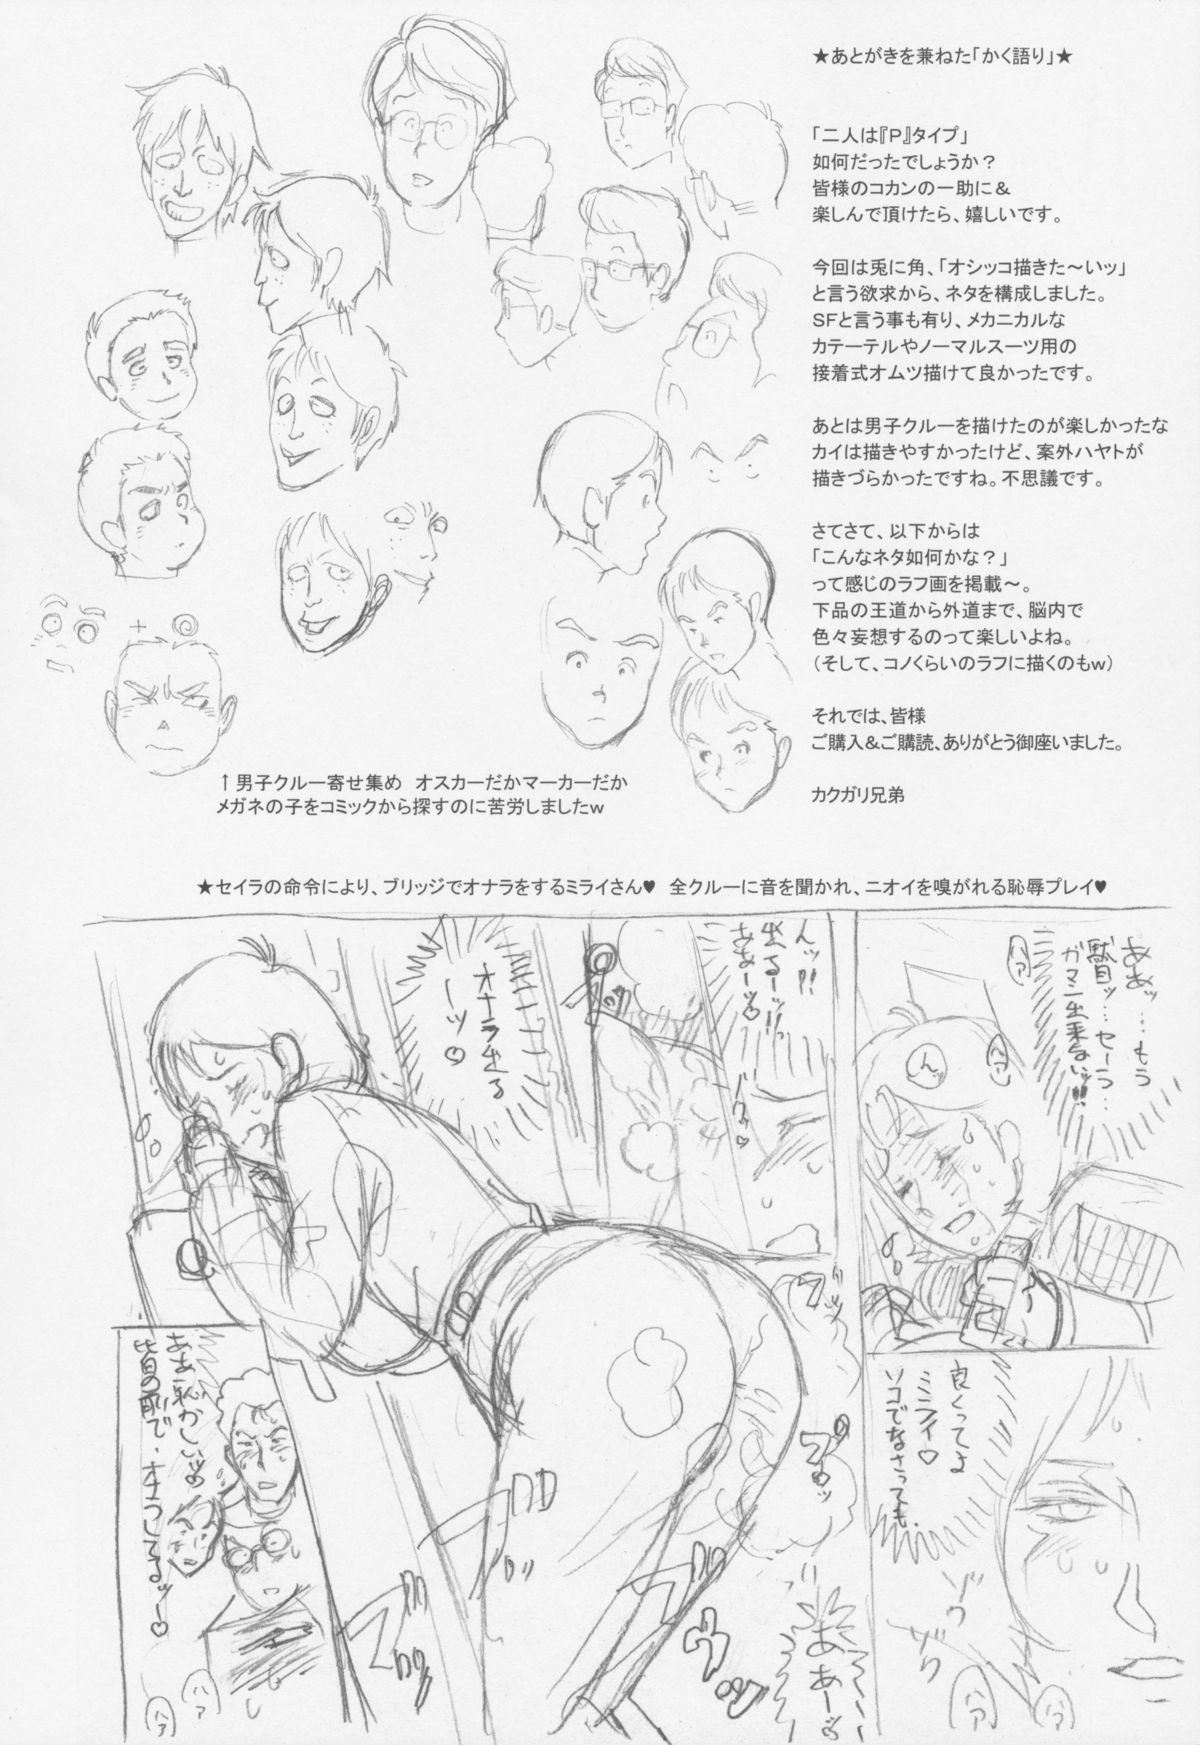 ★あとがきを兼ねた「かく語り」★
「二人は『P』タイプ」
如何だったでしょうか？
皆様のコカンの一助に＆
楽しんで頂けたら、嬉しいです。
今回は兎に角、「オシッコ描きた～いッ」
と言う欲求から、ネタを構成しました。
SFと言う事も有り、メカニカルな
カテーテルやノーマルスーツ用の
接着式オムツ描けて良かったです。
あとは男子クルーを描けたのが楽しかったな
カイは描きやすかったけど、案外ハヤトが
描きづらかったですね。不思議です。
さてさて、以下からは
「こんなネタ如何かな？」
って感じのラフ画を掲載～。
下品の王道から外道まで、脳内で
色々妄想するのって楽しいよね。
（そして、コノくらいのラフに描くのもｗ）
それでは、皆様
ご購入＆ご購読、ありがとう御座いました。
カクガリ兄弟
↑男子クルー寄せ集め　オスカーだかマーカーだか
メガネの子をコミックから探すのに苦労しましたｗ
★セイラの命令により、ブリッジでオナラをするミライさん♥　全クルーに音を聞かれ、ニオイを嗅がれる恥辱プレイ♥
ああッ……もう
駄目ッ…セーラ…
ガマン出来ないッ!!
ハァ
ハァ
んッ
良くってよ
ミライ♡
ソコでなさっても
ゾク
ゾク
ハァ
ハァ
んッ!!
出るーッ!!
ああーッ♡
オナラ出る
ーッ♡
ブゥッ
ああーッ
ああ恥かしい
皆の前で・オナラしてるッー♡
ハァ
ハァ